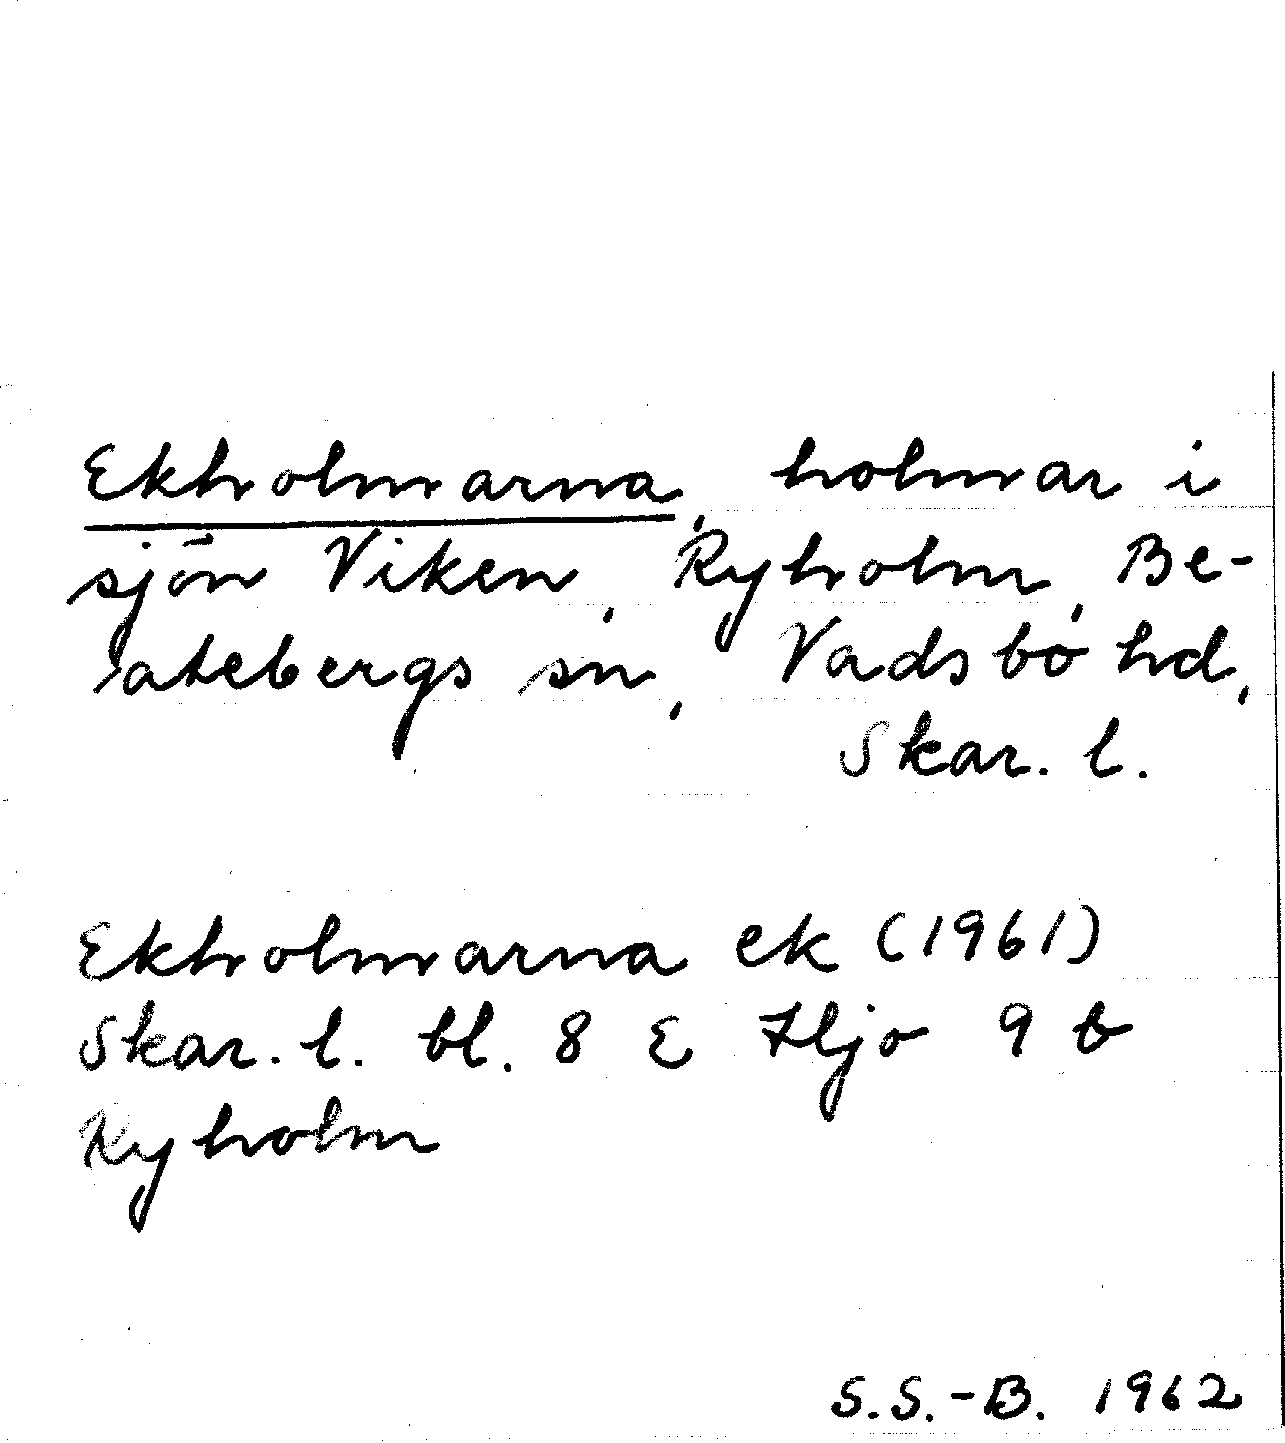 Ekholmarna, holmar i
sjön Viken, Ryholm, Be-
atebergs sn, Vadsbo hd,
Skar. l.
Ekholmarna ek (1961)
Skar. l. bl. 8 E Hjo 9 b
Ryholm
S.S.-B. 1962